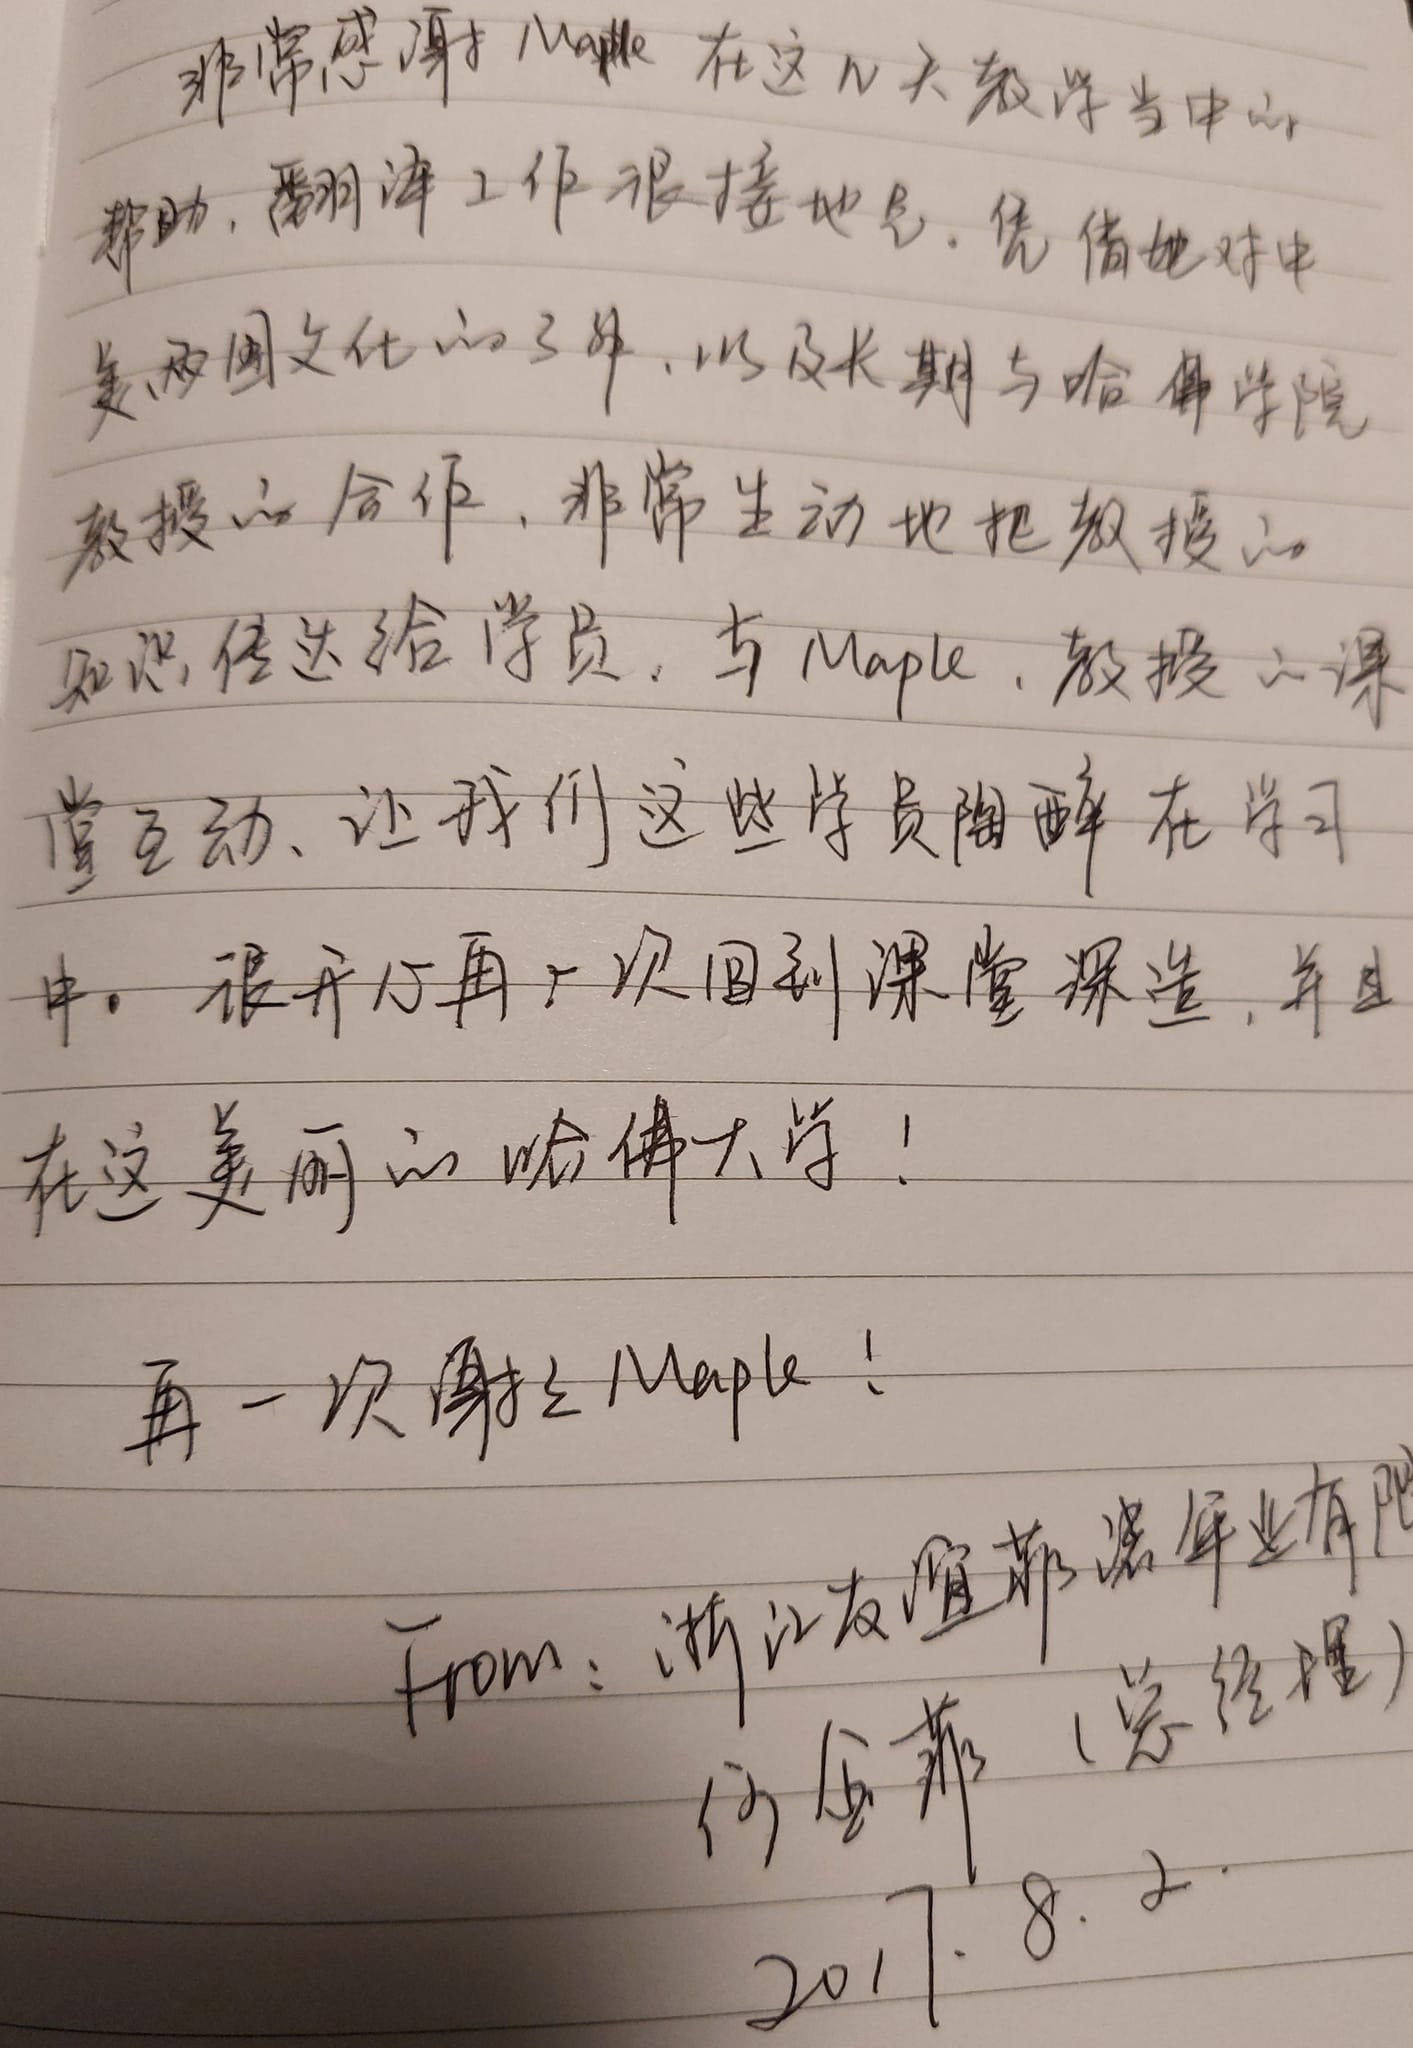 非常感谢 Maple 在这几天教学当中的
帮助,翻译工作很接地气.凭借她对中
美两国文化的了解,以及长期与哈佛学院
教授的合作,非常生动地把教授的
知识传达给学员,与Maple、教授的课
堂互动、让我们这些学员陶醉在学习
中。很开心再一次回到课堂深造,并且
在这美丽的哈佛大学!
再一次谢谢Maple!
From:浙江友谊菲诺伞业有限
何金菲(总经理)
2017.8.2.